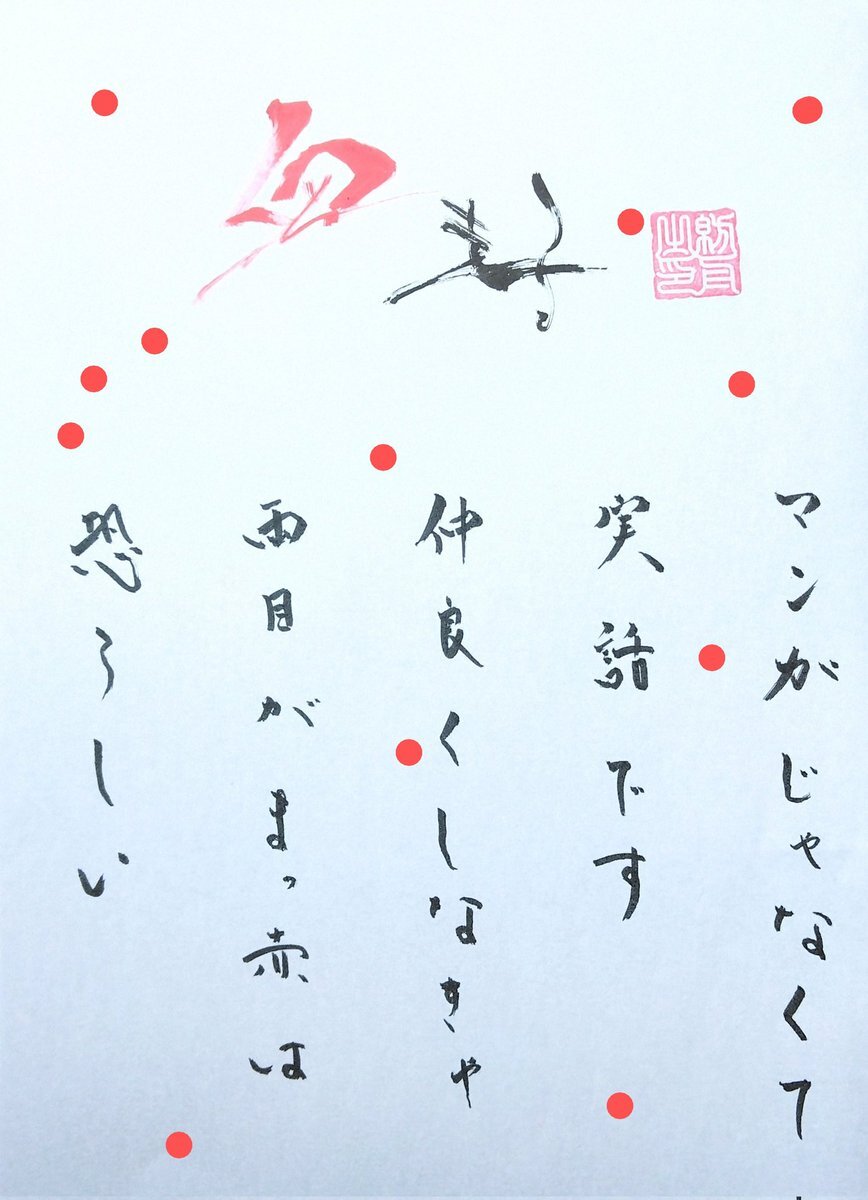 マンガじゃなくて
実話です
仲良くしなきゃ
両目がまっ赤は
恐ろしい